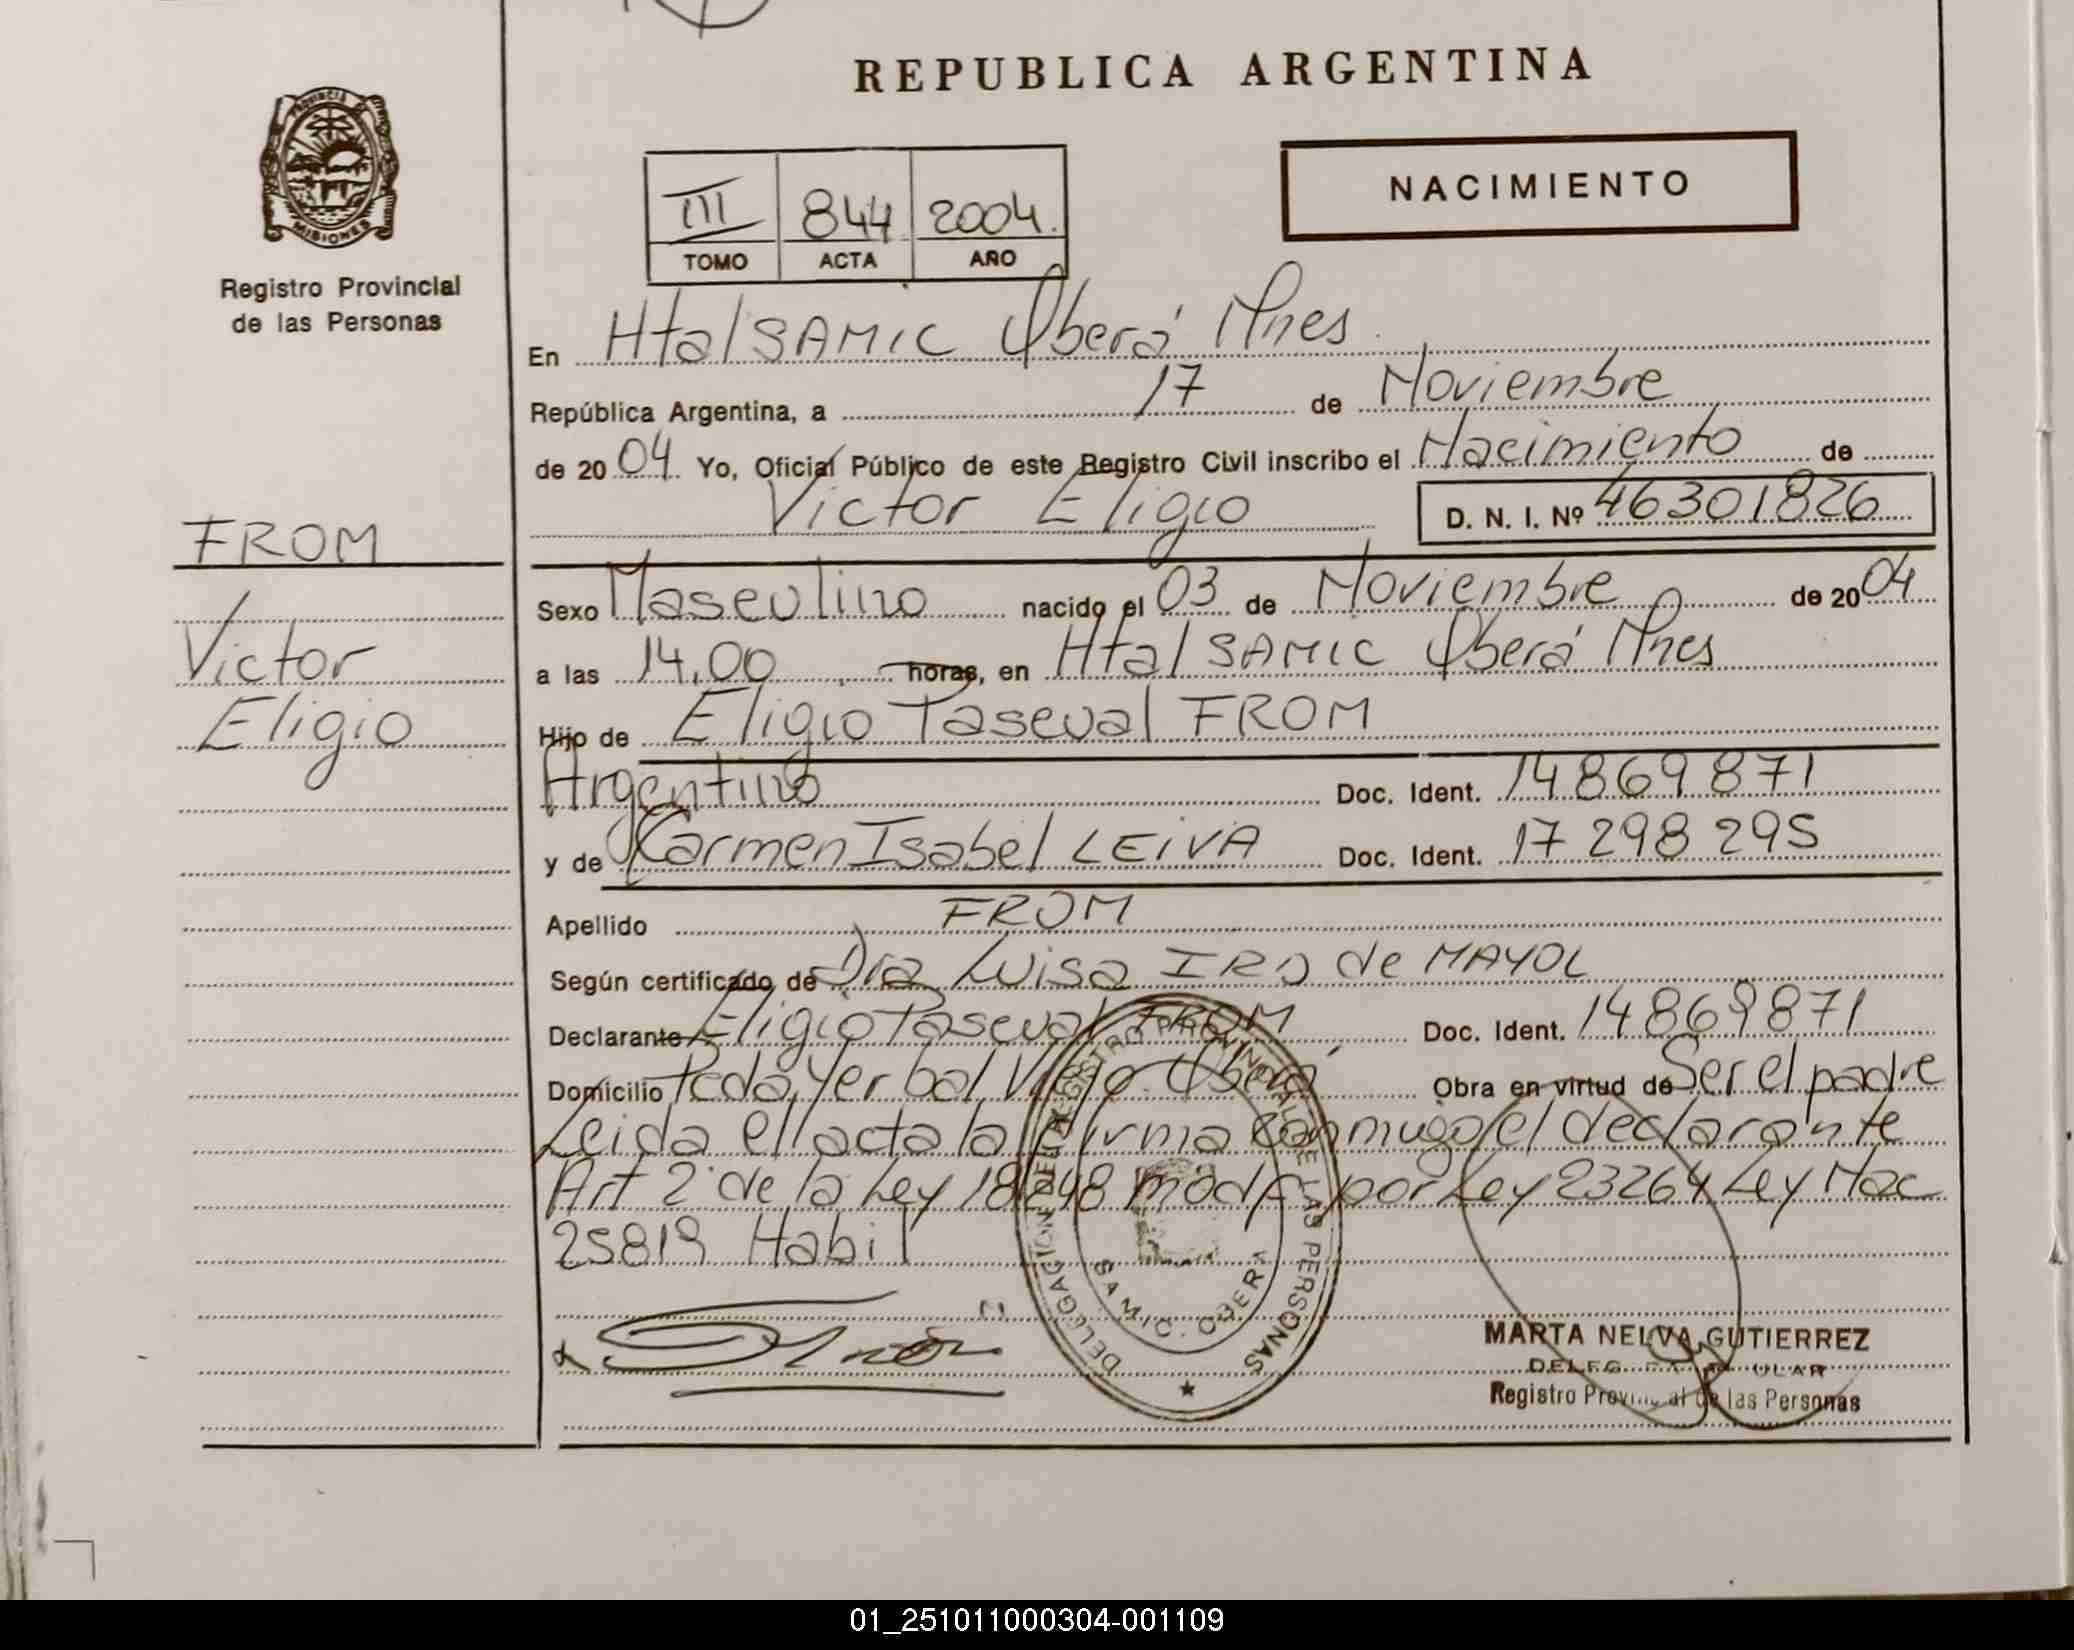 REPUBLICA ARGENTINA
PROVINCIA DE
MISIONES
Registro Provincial
de las Personas
III 844 2004.
TOMO ACTA AÑO
NACIMIENTO
En Htal SAMIC Oberá Mnes
República Argentina, a 17 de Noviembre
de 2004 Yo, Oficial Público de este Registro Civil inscribo el Nacimiento de
Victor Eligio D. N. I. Nº 46301826
FROM
Victor
Eligio
Sexo Masculino nacido el 03 de Noviembre de 2004
a las 14,00 horas, en Htal SAMIC Oberá Mnes
Hijo de Eligio Pascual FROM
Argentino Doc. Ident. 14869871
y de Carmen Isabel LEIVA Doc. Ident. 17 298 295
Apellido FROM
Según certificado de Dra Luisa IRO de MAYOL
Declarante Eligio Pascual FROM Doc. Ident. 14869871
Domicilio Pcda, Yerbal Viejo. Oberá Obra en virtud de Ser el padre
Leida el acta la firma conmigo el declarante
Art 2 de la Ley 18248 modf por Ley 23264 Ley Nac
25819 Habil
DELEGACION DEL REGISTRO PROVINCIAL DE LAS PERSONAS
SAMIC. OBERA
MARTA NELVA GUTIERREZ
Registro Provincial de las Personas
01_251011000304-001109